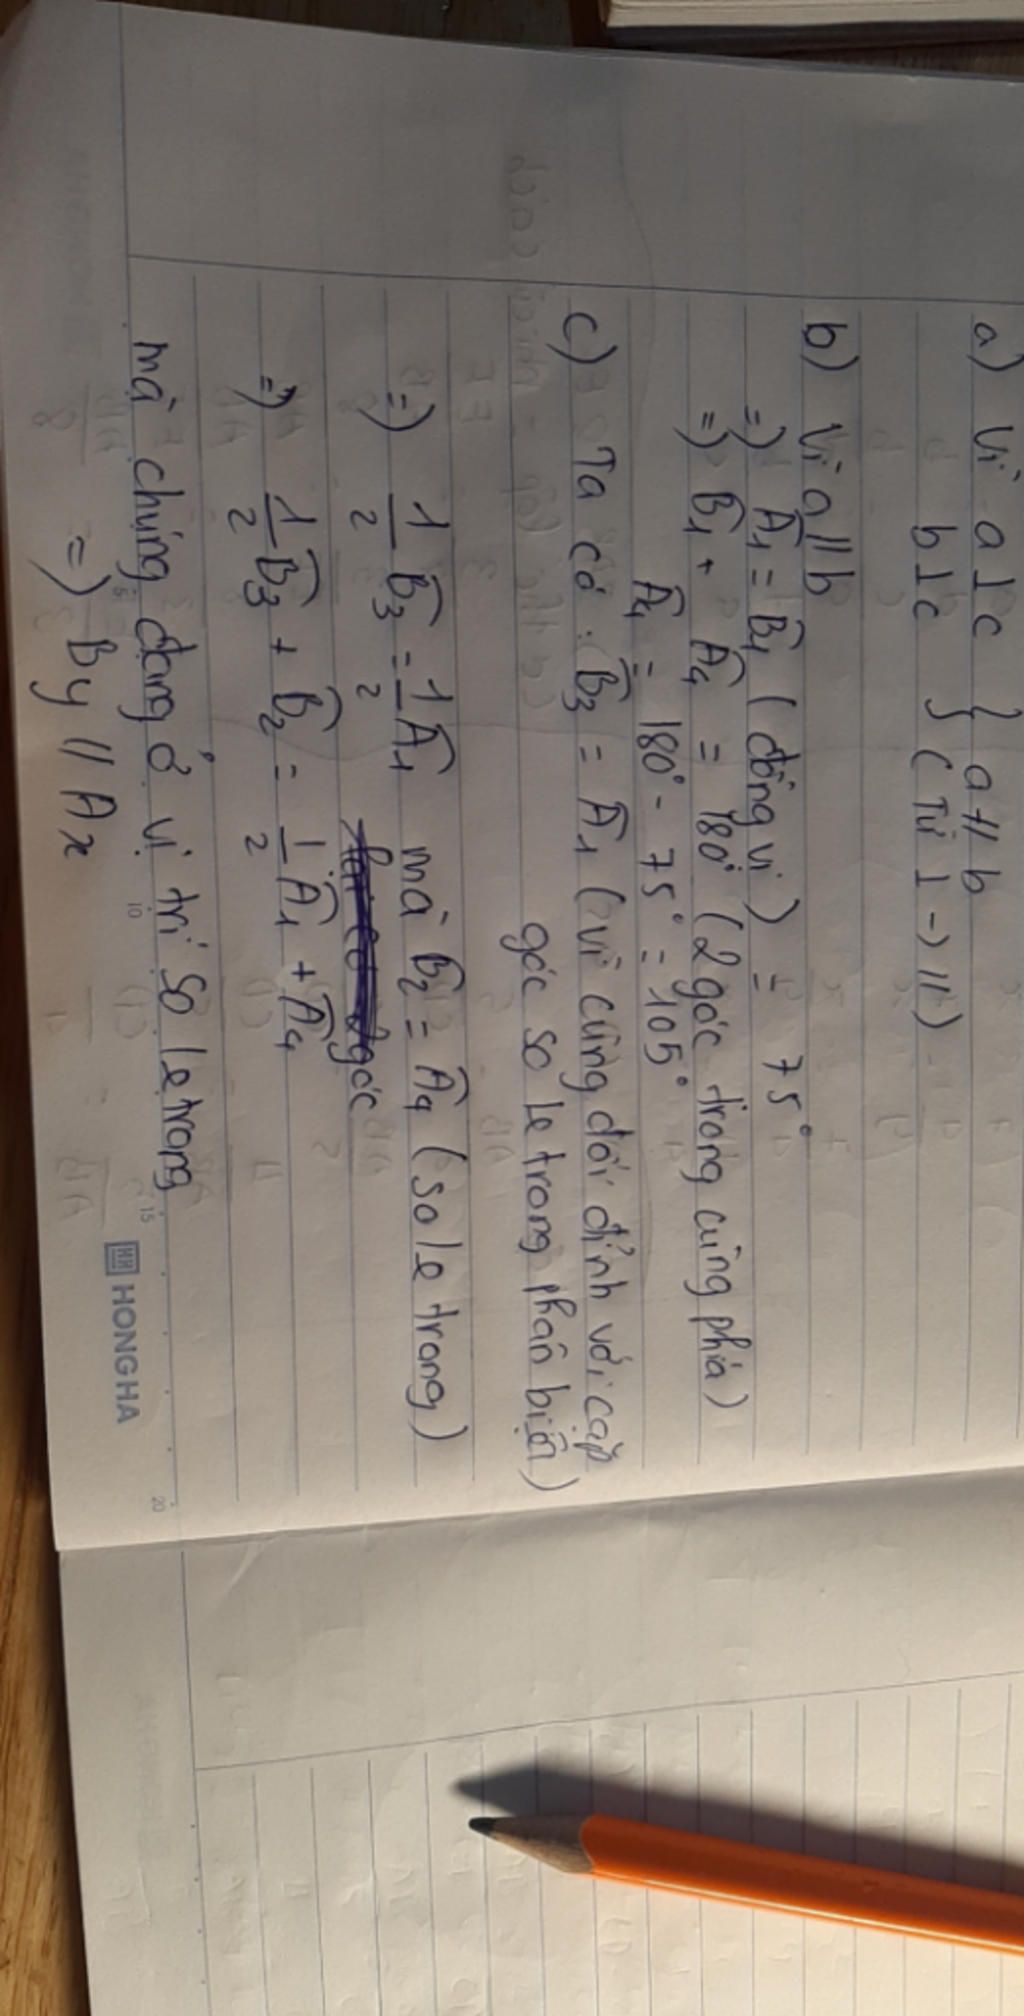 a) Vì a⊥c } a // b
b⊥c } (Từ ⊥ -> //)
b) Vì a // b
=) Â₁ = B̂₁ (đồng vị) = 75°
=) B̂₁ + Â₄ = 180° (2 góc trong cùng phía)
Â₄ = 180° - 75° = 105°
c) Ta có: B̂₃ = Â₁ (vì cùng đối đỉnh với cặp
góc so le trong phân biệt)
=) 1/2 B̂₃ = 1/2 Â₁ mà B̂₂ = Â₄ (so le trong)
góc
=) 1/2 B̂₃ + B̂₂ = 1/2 Â₁ + Â₄
mà chúng đang ở vị trí so le trong
=) By // Ax
5 10 15 20
HH HONG HA